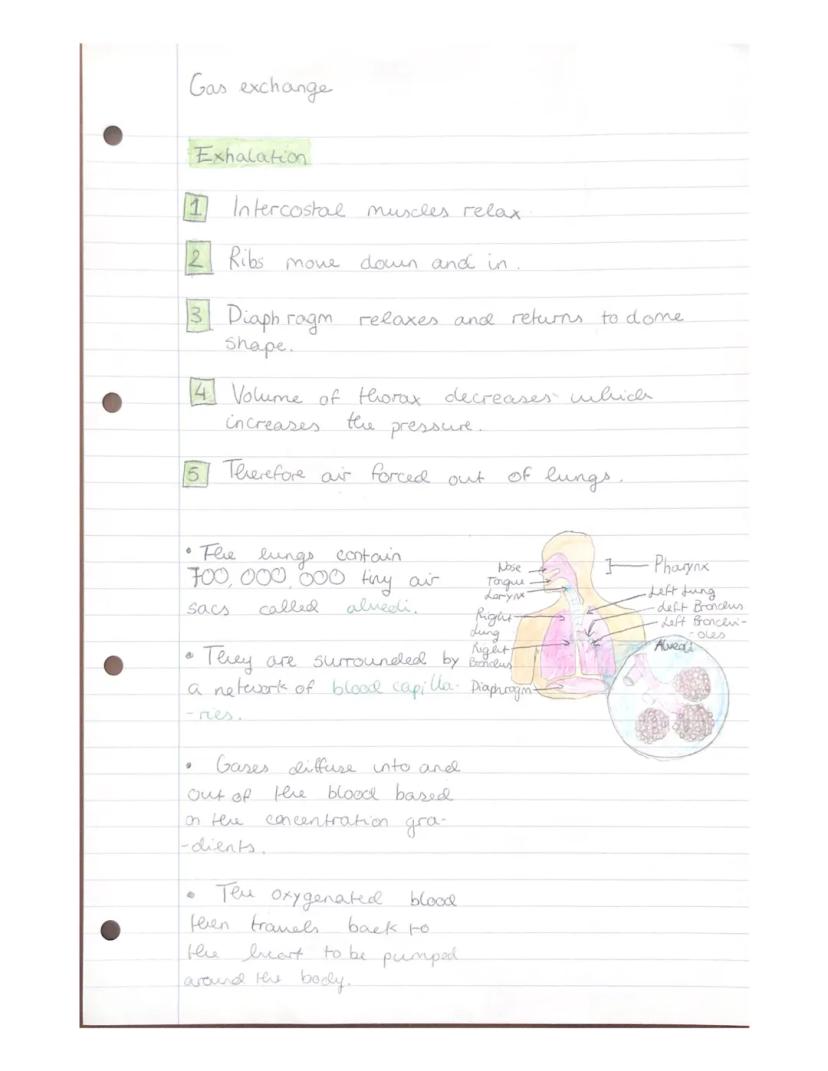 Gas exchange
Exhalation
1 Intercostal muscles relax
2 Ribs move down and in.
3 Diaphragm relaxes and returns to dome
shape.
4 Volume of thorax decreases which
increases the pressure.
5 Therefore air forced out of lungs.
• The lungs contain
700,000,000 tiny air
sacs called alveoli.
• They are surrounded by
a network of blood capilla-
-ries.
• Gases diffuse into and
out of the blood based
on the concentration gra-
-dients.
• The oxygenated blood
then travels back to
the heart to be pumped
around the body.
Nose
Tongue
Larynx
Right
lung
Right
Bronchus
Diaphragm
Pharynx
Left lung
Left Bronchus
Left Bronchi-
-oles
Alveoli